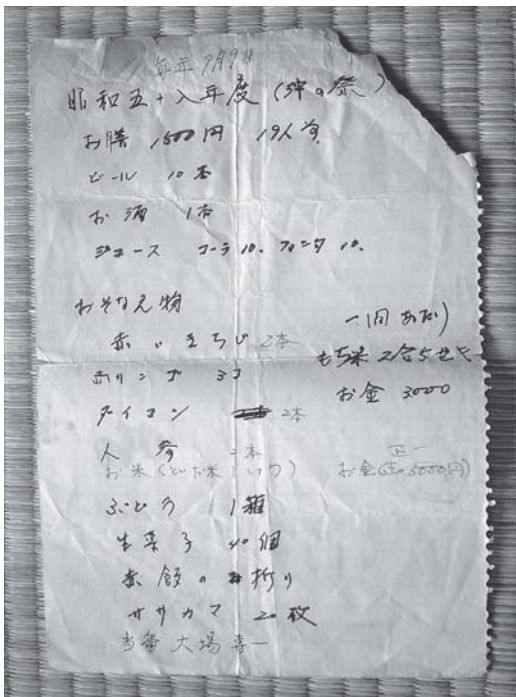 毎年9月9日
昭和五十八年度(沖の祭)
お膳 1500円 19人前
ビール 10本
お酒 1本
ジュース コーラ10. ファンタ10.
おそなえ物
赤いきちじ 2本
赤リンゴ 3コ
ダイコン 2本
人参 2本
お米(といだ米 1しょう)
ぶどう 1箱
生菓子 40個
赤飯の折り
ササカマ 20枚
当番 大場喜一
一同あたり
もち米 2合5せき
お金 3000
正一
お金 5000円)